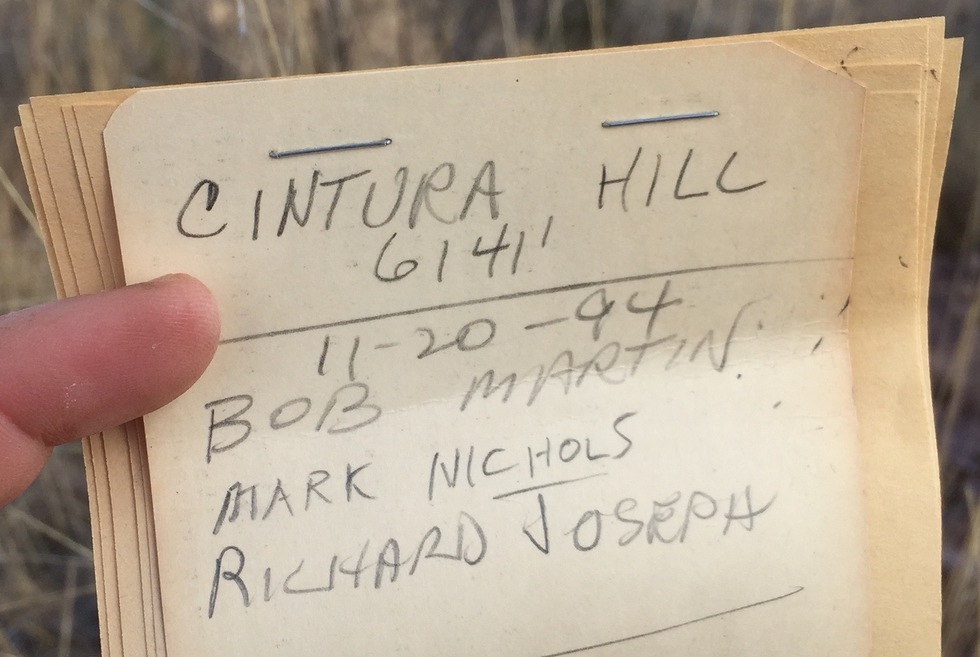 CINTURA HILL
6141'
11-20-94
BOB MARTIN
MARK NICHOLS
RICHARD JOSEPH